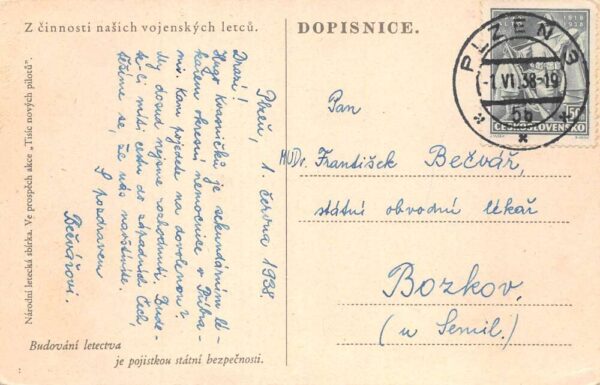 Z činnosti našich vojenských letců.
Národní letecká sbírka. Ve prospěch akce „Tisíc nových pilotů".
Plzeň, 1. června 1938.
Drazí!
Hugo Kramičků je sekundárním lé-
kařem okresní nemocnice v Příbra-
mi. Kam pojedete na dovolenou?
My dosud nejsme rozhodnuti. Bude-
te-li míti cestu do západních Čech,
těšíme se, že nás navštívíte.
S pozdravem
Bečvářovi.
Budování letectva
je pojistkou státní bezpečnosti.
DOPISNICE.
PLZEŇ 3
-1.VI.38-19
5b
1918
1938
50
ČESKOSLOVENSKO
Pan
MUDr. František Bečvář,
státní obvodní lékař
Bozkov.
(u Semil.)